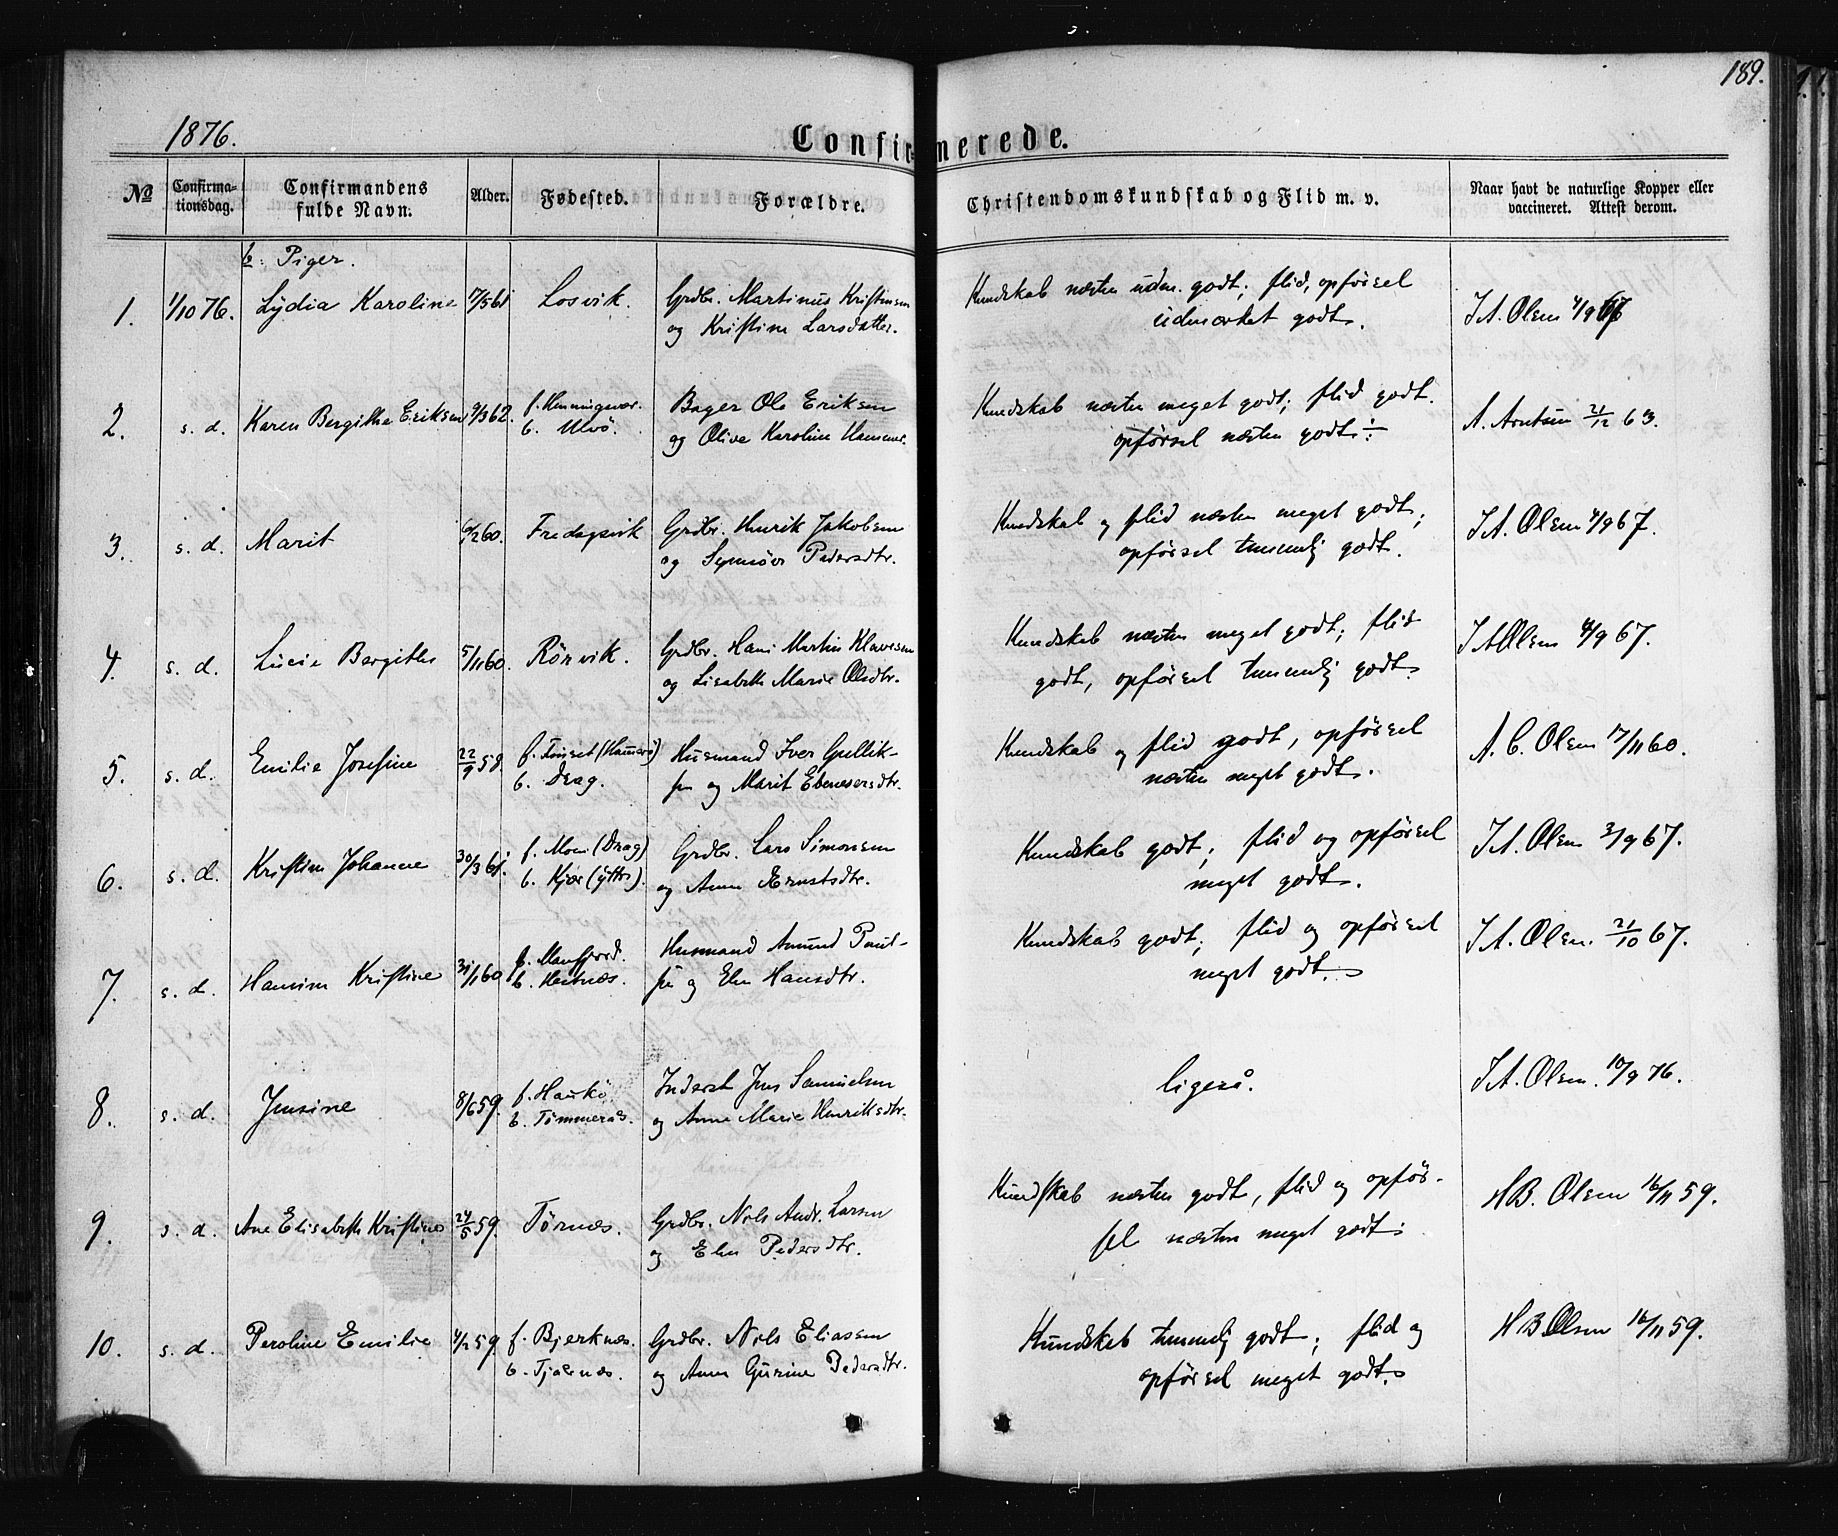 189.
1876.
Confirmerede.
No
Confirma-
tionsdag.
Confirmandens
fulde Navn.
Alder.
Fødested.
Forældre.
Christendomskundskab og Flid m. v.
Naar havt de naturlige Kopper eller
vaccineret. Attest derom.
b: Piger.
1. 1/10 76. Lydia Karoline 17/5 61 Losvik.
Grdbr. Martinus Kristensen
og Kristine Larsdatter.
Kundskab næsten udm. godt; flid, opførsel
udmærket godt.
J A. Olsen 4/9 67
2. s. d. Karen Bergitha Eriksen 9/3 62.
f. Henningvær.
b. Ulvö.
Bager Ole Eriksen
og Olive Karoline Hammer.
Kundskab næsten meget godt; flid godt.
opførsel næsten godt.
A. Arntsen 21/12 63.
3. s. d. Marit 6/2 60. Fredagsvik
Grdbr. Henrik Jakobsen
og Synnøve Pedersdtr.
Kundskab og flid næsten meget godt;
opførsel temmelig godt.
J A. Olsen 4/9 67.
4. s. d. Lucie Bergithe 5/11 60. Rörvik.
Grdbr. Hans Martin Klavesen
og Lisabeth Marie Olsdtr.
Kundskab næsten meget godt; flid
godt, opførsel temmelig godt.
J A Olsen 4/9 67.
5. s. d. Emilie Josefine 22/9 58.
f. Finset (Hamerö)
b. Drag.
Husmand Iver Gullik-
sen og Marit Ebenesersdtr.
Kundskab og flid godt, opførsel
næsten meget godt.
A. C. Olsen 17/11 60.
6. s. d. Kristine Johanne 30/3 61.
f. Moen (Drag)
b. Kjær (ytre).
Grdbr. Lars Simonsen
og Anne Ernstsdtr.
Kundskab godt; flid og opførsel
meget godt.
J A. Olsen 3/9 67.
7. s. d. Hansine Kristine 31/1 60
f. Manfjord.
b. Hestnæs.
Husmand Amund Paul-
sen og Elen Hansdtr.
Kundskab godt; flid og opførsel
meget godt.
J A. Olsen. 21/10 67.
8. s. d. Jensine 8/6 59.
f. Haukö
b. Tömmeraas.
Inderst Jens Samuelsen
og Anne Marie Henriksdtr.
ligeså.
J A. Olsen. 10/9 76.
9. s. d. Ane Elisabeth Kristine 24/5 59. Tørnæs.
Grdbr. Nils Andr. Larsen
og Elen Pedersdtr.
Kundskab næsten godt, flid og opfør-
sel næsten meget godt.
H B. Olsen 16/11 59.
10. s. d. Peroline Emilie 4/2 59
f. Bjerknæs.
b. Tjalnæs.
Grdbr. Nils Eliassen
og Anne Gurine Pedersdtr.
Kundskab temmelig godt; flid og
opførsel meget godt.
H B Olsen 16/11 59.